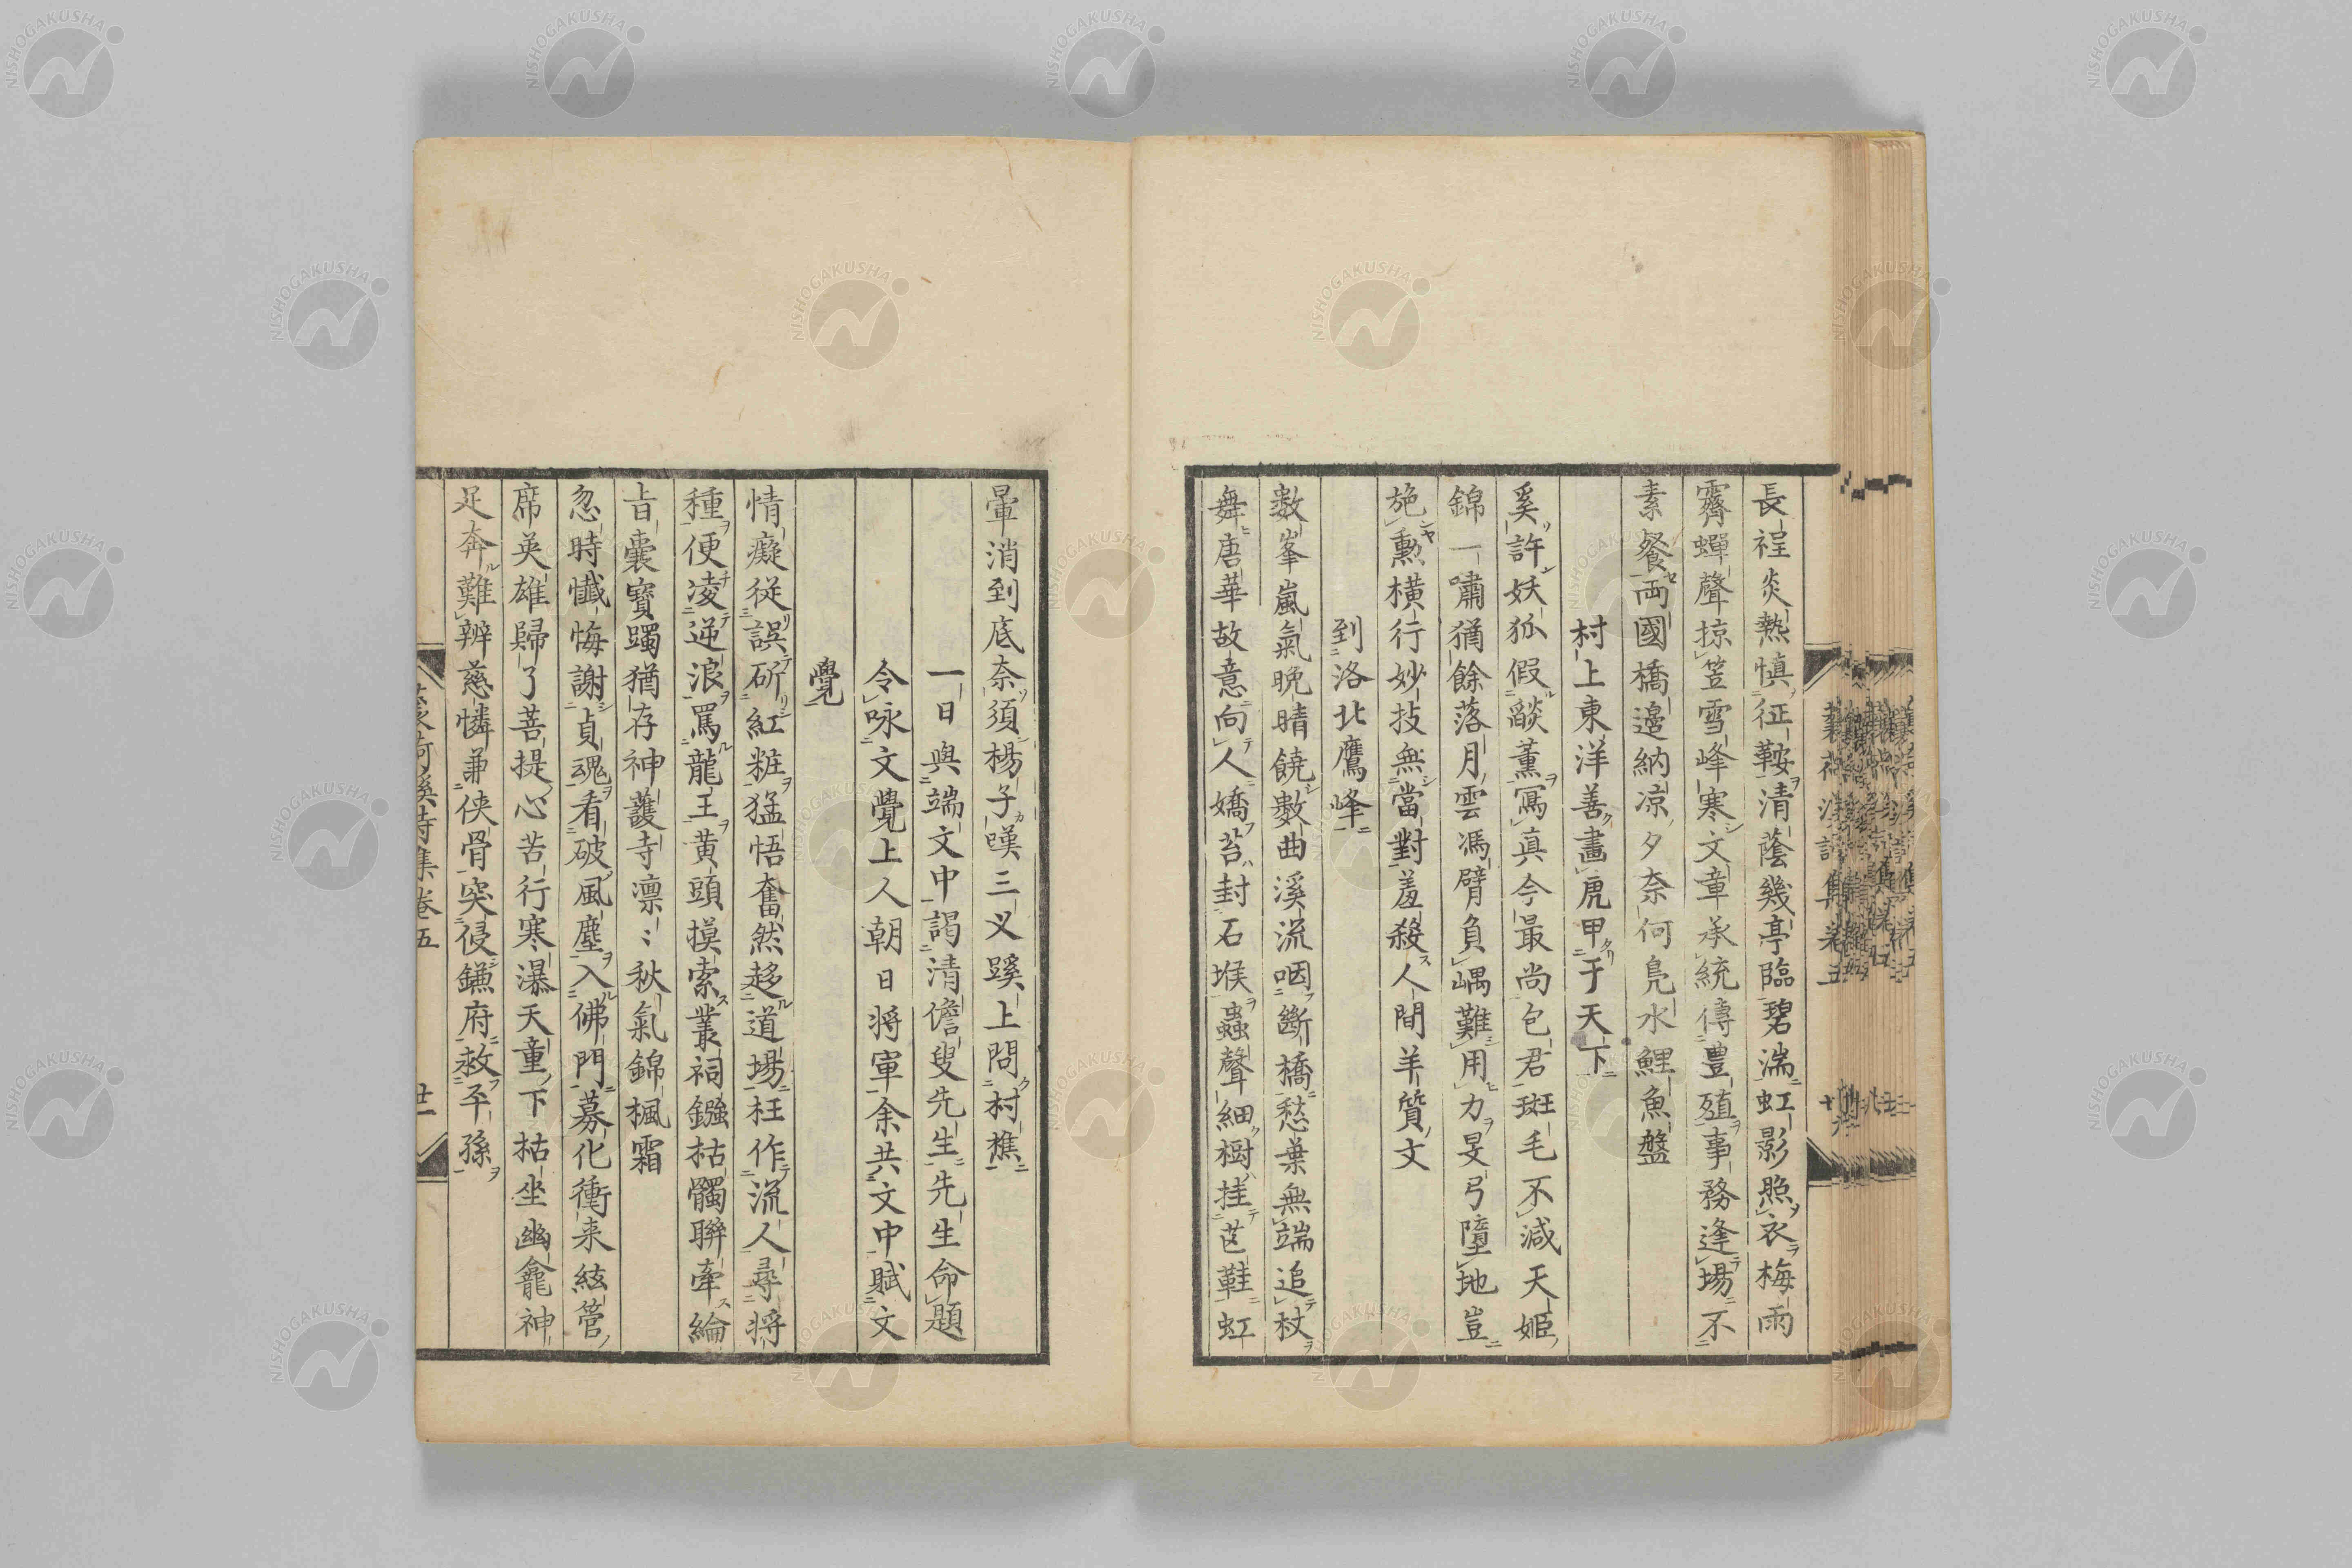 長程炎熱慎征鞍清蔭幾亭臨碧湍虹影照衣梅雨
霽蟬聲掠笠雪峰寒文章承統傳豊殖事務逢場不
素餐両國橋邊納凉夕奈何鳧水鯉魚盤
村上東洋善畫虎甲于天下
奚許妖狐假燄薰冩真今最尚包君斑毛不減天姫
錦一嘯猶餘落月雲馮臂負嵎難用力旻弓墮地豈
施勲横行妙技無當對羞殺人間羊質文
到洛北鷹峰
數峯嵐氣晩晴饒數曲溪流咽斷橋愁葉無端追杖
舞唐華故意向人嬌苔封石堠蟲聲細樹挂芒鞋虹
暈消到底奈須楊子嘆三义蹊上問村樵
一日與端文中謁清儋叟先生先生命題
令咏文覺上人朝日將軍余共文中賦文
覺
情癡従誤斫紅粧猛悟奮然趍道場枉作流人尋將
種便凌逆浪罵龍王黄頭摸索叢祠鏹枯髑聯牽綸
㫖嚢寶躅猶存神護寺凛〻秋氣錦楓霜
忽時懺悔謝貞魂看破風塵入佛門募化衝来絃管
席英雄歸了菩提心苦行寒瀑天童下枯坐幽龕神
足奔難辨慈憐兼侠骨突侵鎌府救平孫
蓑荷溪詩集巻五
廿一
NISHOGAKUSHA